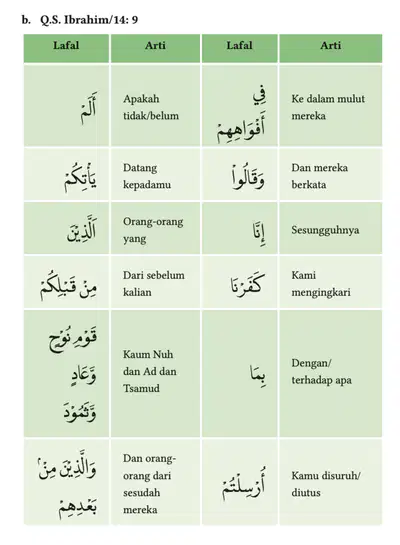 b. Q.S. Ibrahim/14: 9
Lafal Arti Lafal Arti
أَلَمْ
Apakah
tidak/belum
فِي
أَفْوَاهِهِمْ
Ke dalam mulut
mereka
يَأْتِكُمْ
Datang
kepadamu
وَقَالُوْا
Dan mereka
berkata
الَّذِيْنَ
Orang-orang
yang
إِنَّا
Sesungguhnya
مِنْ قَبْلِكُمْ
Dari sebelum
kalian
كَفَرْنَا
Kami
mengingkari
قَوْمِ نُوْحٍ
وَّعَادٍ
وَّثَمُوْدَ
Kaum Nuh
dan Ad dan
Tsamud
بِمَا
Dengan/
terhadap apa
وَالَّذِيْنَ مِنْۢ
بَعْدِهِمْ
Dan orang-
orang dari
sesudah
mereka
أُرْسِلْتُمْ
Kamu disuruh/
diutus